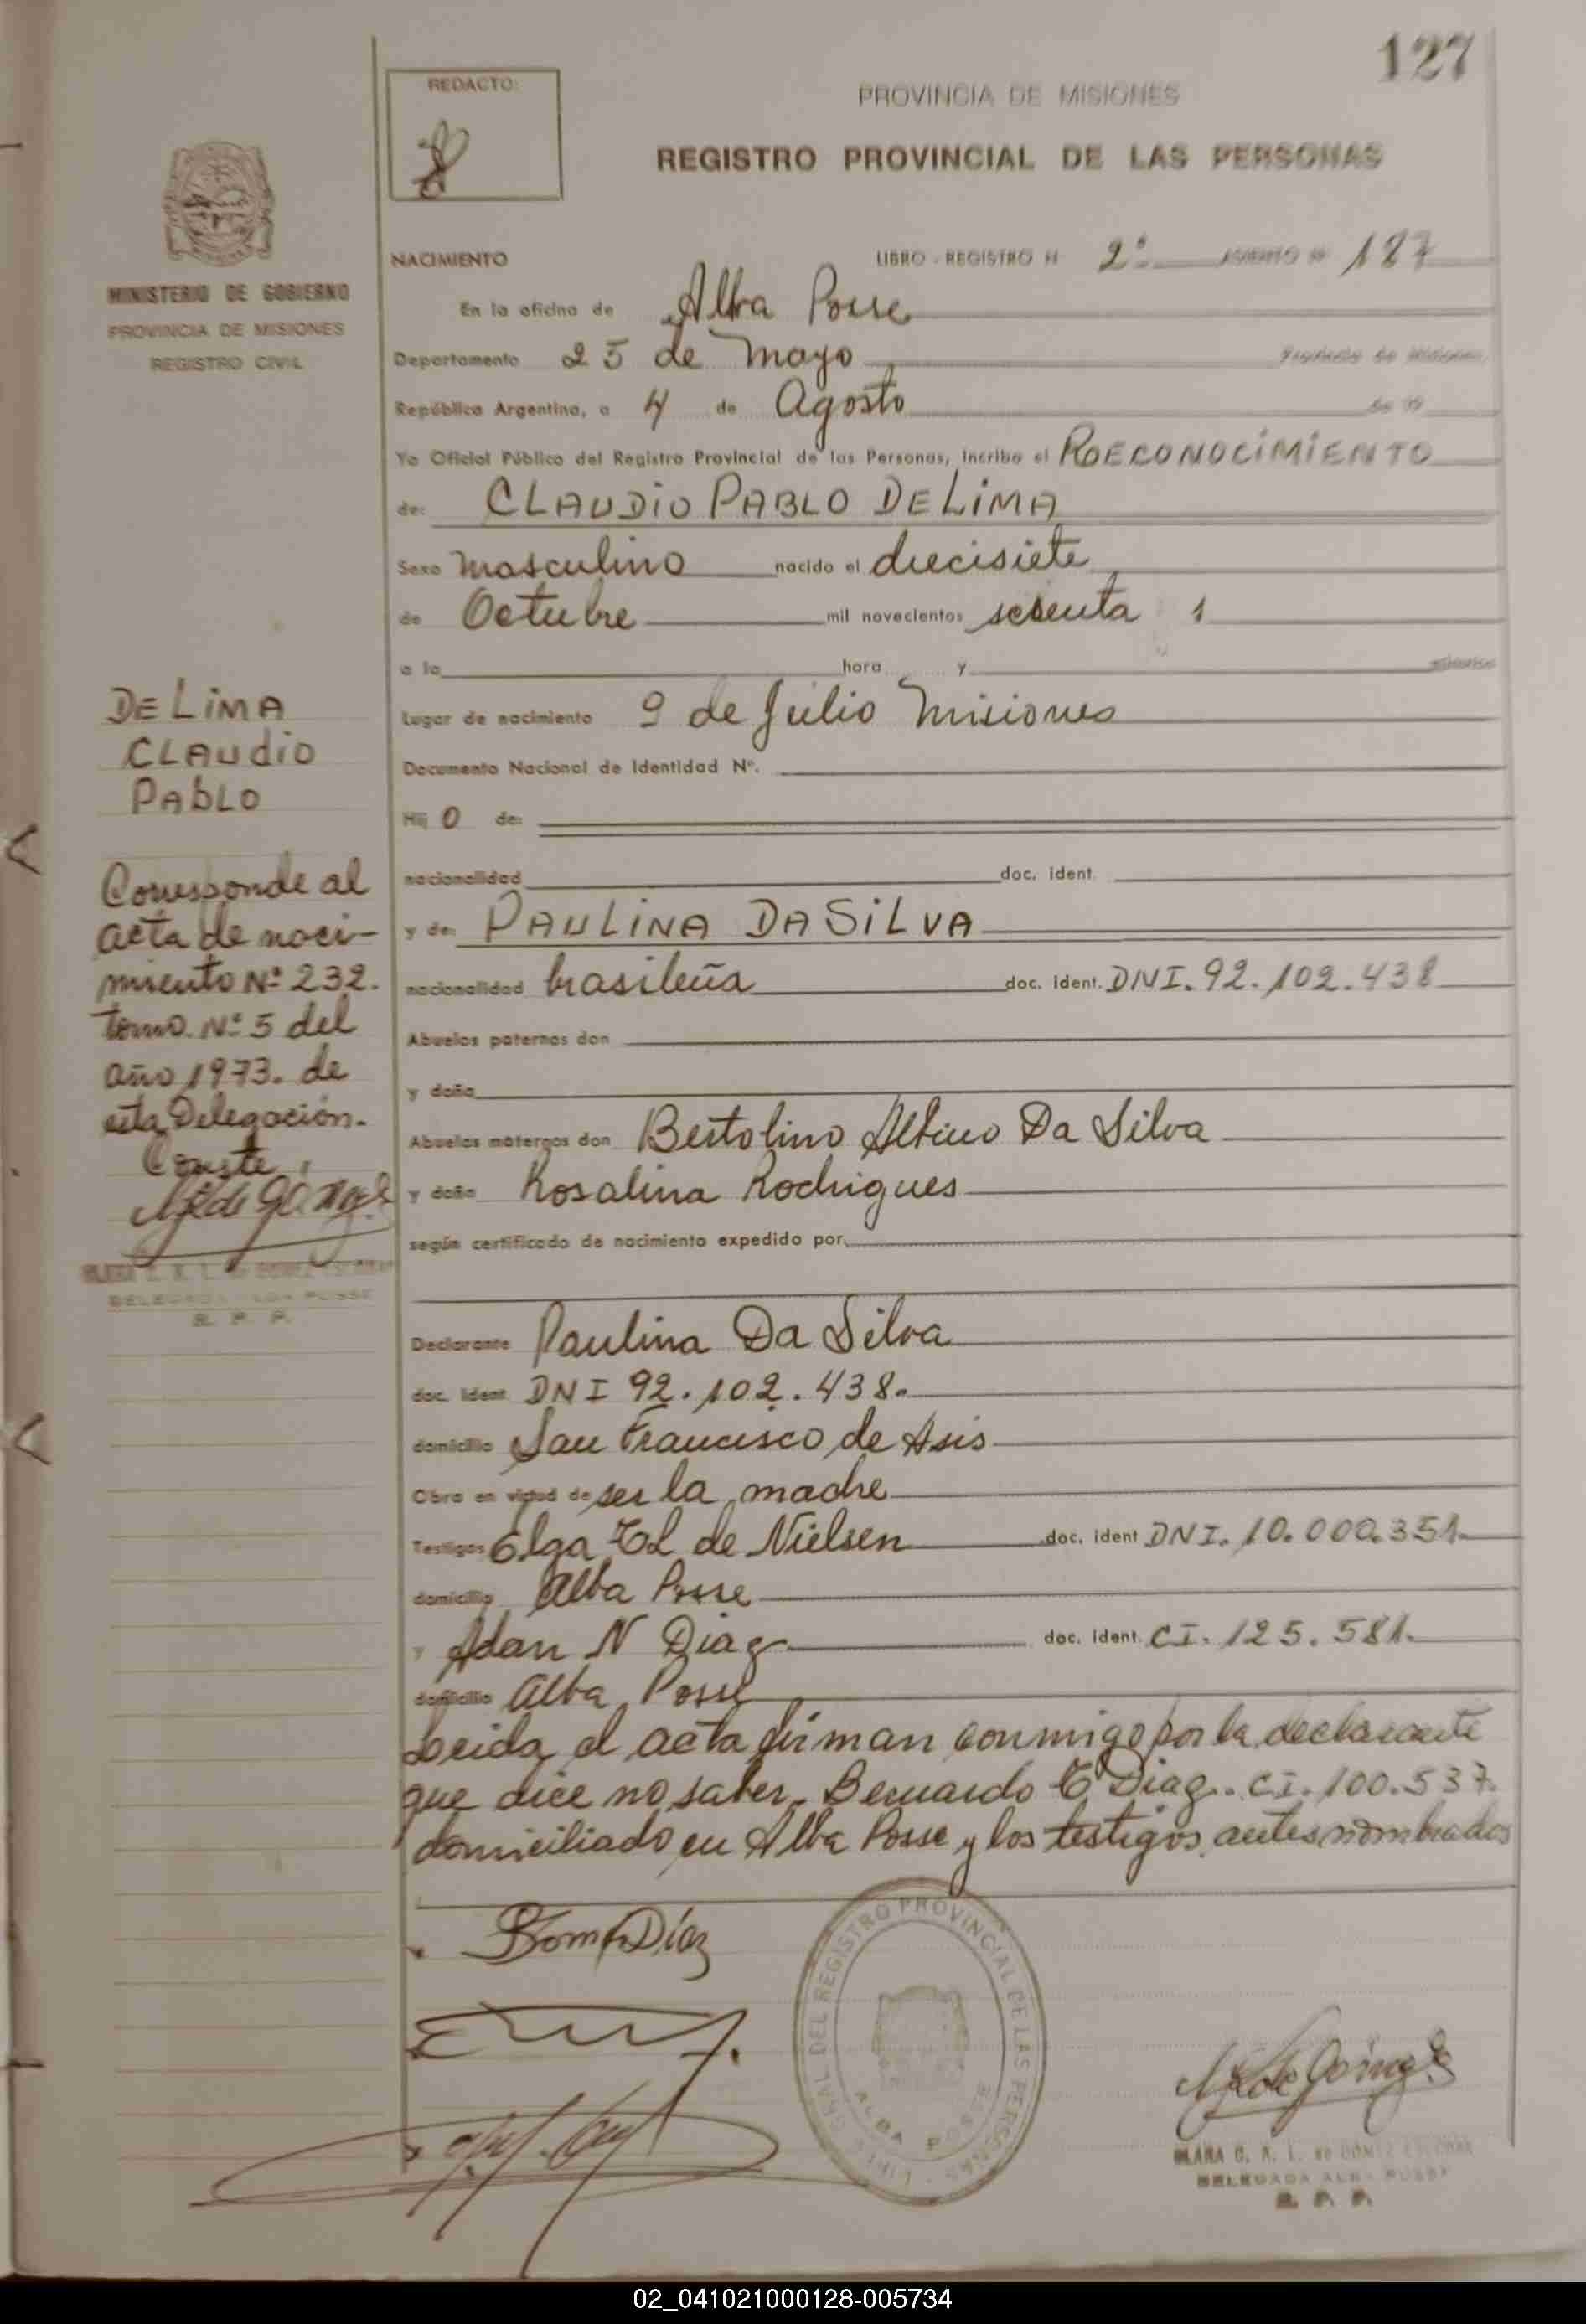 127
REDACTO:
PROVINCIA DE MISIONES
REGISTRO PROVINCIAL DE LAS PERSONAS
MINISTERIO DE GOBIERNO
PROVINCIA DE MISIONES
REGISTRO CIVIL
NACIMIENTO LIBRO - REGISTRO Nº 2º ASIENTO Nº 127
En la oficina de Alba Posse
Departamento 25 de Mayo Provincia de Misiones,
República Argentina, a 4 de Agosto de 19
Yo Oficial Público del Registro Provincial de las Personas, incribo el ROECONOCIMIENTO
de: CLAUDIO PABLO DE LIMA
Sexo masculino nacido el diecisiete
de Octubre mil novecientos sesenta 1
a la hora y minutos
Lugar de nacimiento 9 de Julio Misiones
Documento Nacional de Identidad Nº.
Hij o de:
nacionalidad doc. ident.
y de: PAULINA DA SILVA
nacionalidad brasileña doc. ident. DNI. 92.102.438
Abuelos paternos don
y doña
Abuelos maternos don Bertolino Albino Da Silva
y doña Rosalina Rodrigues
según certificado de nacimiento expedido por
Declarante Paulina Da Silva
doc. ident DNI 92.102.438.
domicilio San Francisco de Asis
Obra en virtud de ser la madre
Testigos Elga de Nielsen doc. ident DNI. 10.000.351.
domicilio Alba Posse
y Adan N Diaz doc. ident. CI. 125.581.
domicilio Alba Posse
Leida el acta firman conmigo por la declarante
que dice no saber. Bernardo T Diaz. CI. 100.537.
domiciliado en Alba Posse y los testigos antes nombrados
DE LIMA
CLAUDIO
PABLO
Corresponde al
acta de naci-
miento Nº 232.
tomo. Nº 5 del
año 1973. de
esta Delegación.
Conste.
R. P. P.
Díaz
DEL REGISTRO PROVINCIAL DE LAS PERSONAS
ALBA POSSE
DELEGADA ALBA POSSE
R. P. P.
02_041021000128-005734